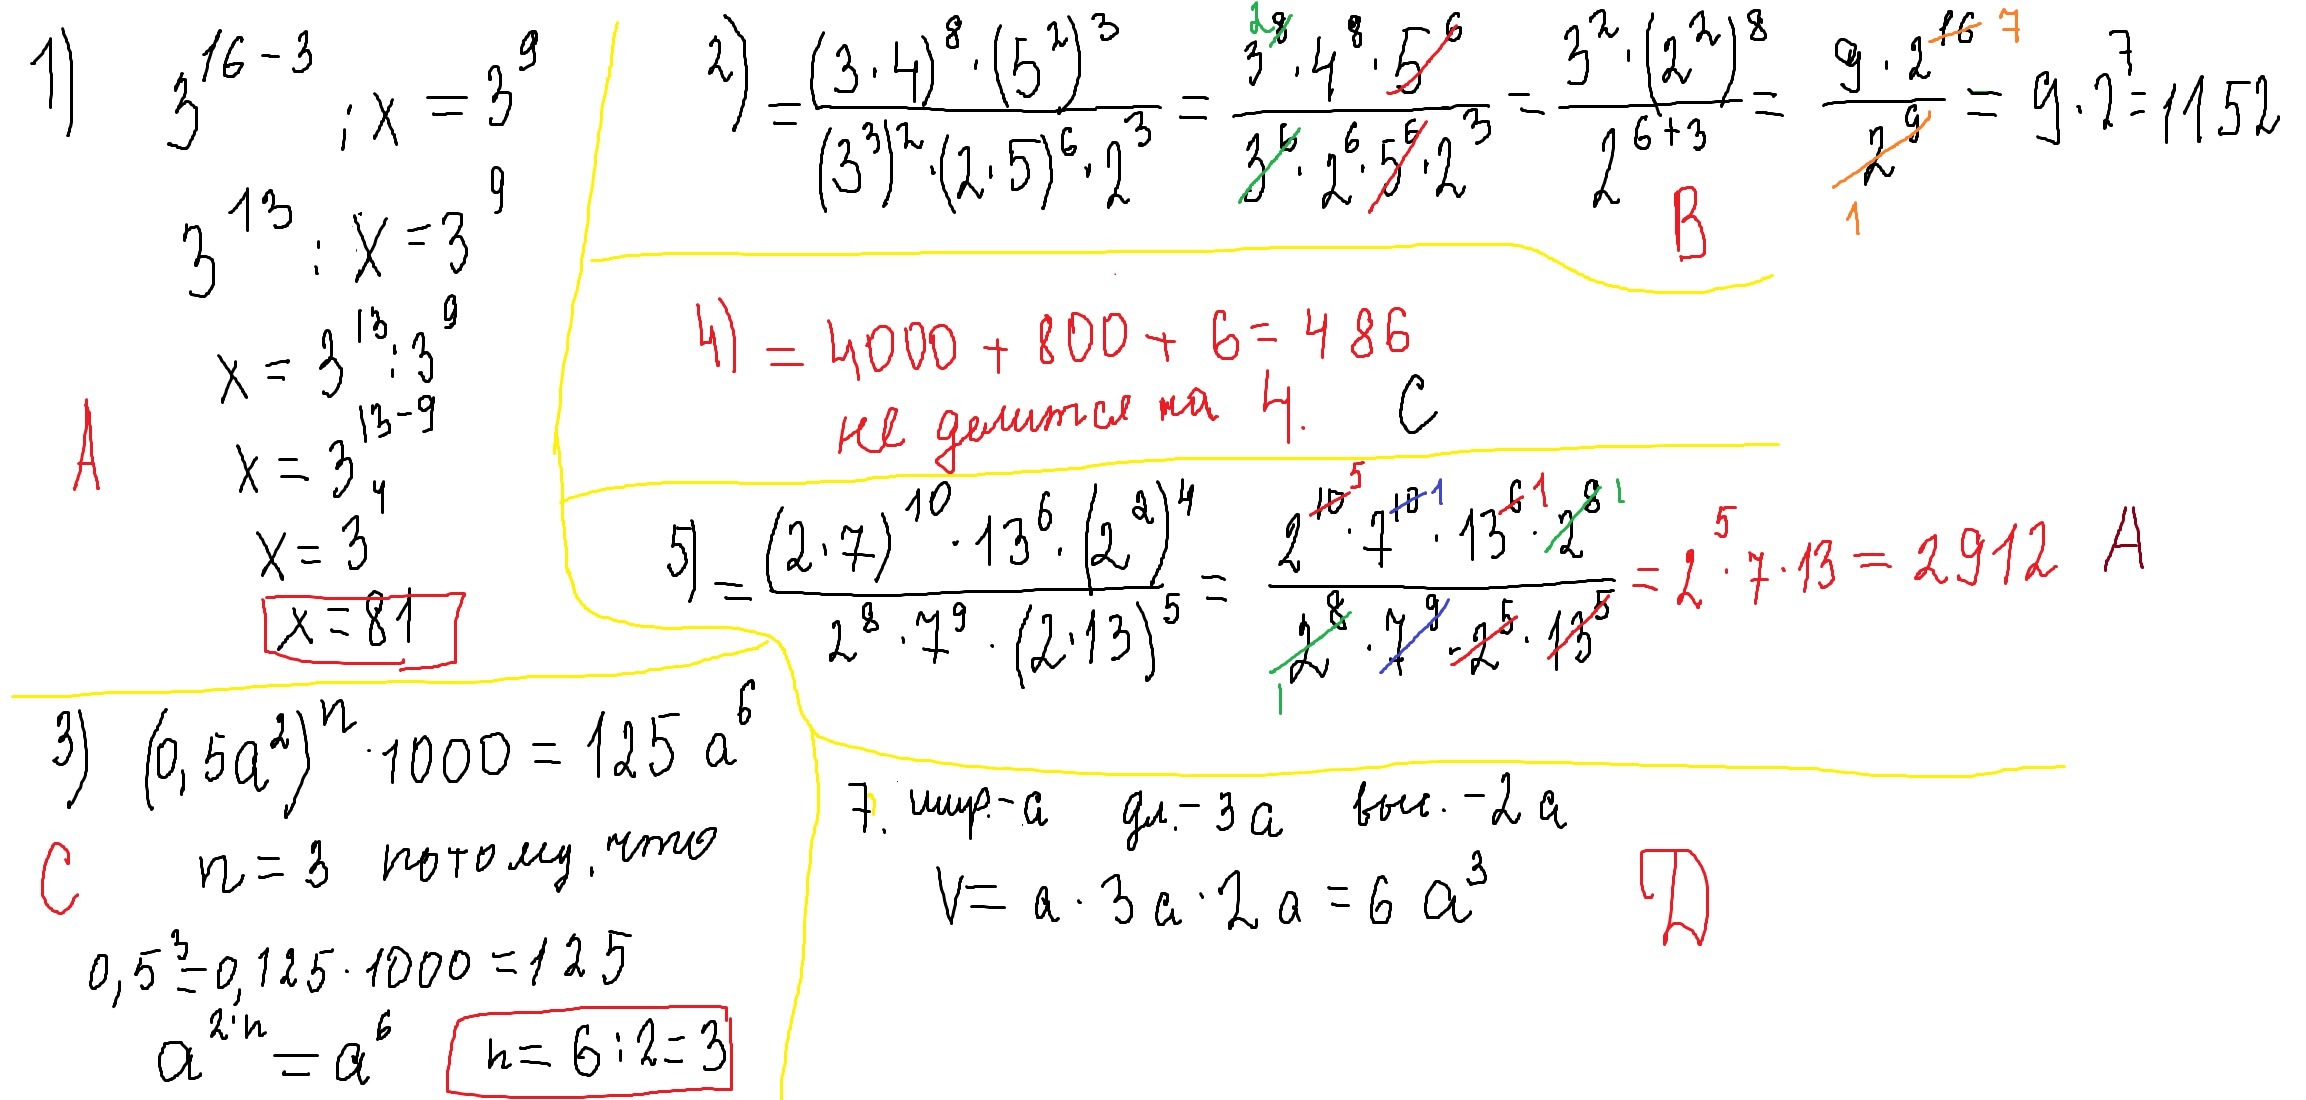 1) 3^{16-3} : x = 3^9
3^{13} : x = 3^9
x = 3^{13} : 3^9
x = 3^{13-9}
x = 3^4
x = 81
A
2) = \frac{(3·4)^8·(5^2)^3}{(3^3)^2·(2·5)^6·2^3} = \frac{3^8·4^8·5^6}{3^6·2^6·5^6·2^3} = \frac{3^2·(2^2)^8}{2^{6+3}} = \frac{9·2^{16}}{2^9} = 9·2^7 = 1152
2
7
1
B
4) = 4000 + 800 + 6 = 486
не делится на 4. C
5) = \frac{(2·7)^{10}·13^6·(2^2)^4}{2^8·7^9·(2·13)^5} = \frac{2^{10}·7^{10}·13^6·2^8}{2^8·7^9·2^5·13^5} = 2^5·7·13 = 2912 A
5 1 1 1
1
3) (0,5a^2)^n·1000 = 125a^6
n = 3 потому, что
C
0,5^3 = 0,125·1000 = 125
a^{2·n} = a^6 n = 6 : 2 = 3
7. шир.-a дл.-3a выс.-2a
V = a·3a·2a = 6a^3
D